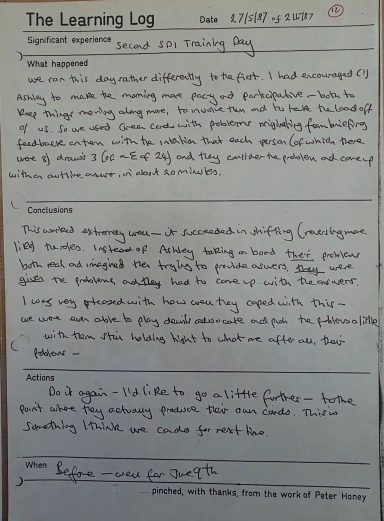 The Learning Log Date 27/5/87 of 21/5/87 12
Significant experience Second SDI Training Day
What happened
We ran this day rather differently to the first. I had encouraged (!)
Ashley to make the morning more pacy and participative - both to
keep things moving along more, to involve them and to take the load off
of us. So we used Green Cards with problems originating from briefing
feedback with the intention that each person (of which there
were 8) draws 3 (of 24) and they consider the problem and come up
with an outline answer, in about 20 minutes.
Conclusions
This worked extremely well - it succeeded in shifting (reversing more
like) the roles. Instead of Ashley taking on board their problems
both real and imagined then trying to provide answers, they were
given the problems and they had to come up with the answers.
I was very pleased with how well they coped with this -
we were even able to play devils advocate and push the problems a little
with them still holding tight to what are after all, their
problems -
Actions
Do it again - I'd like to go a little further - to the
point where they actually produce their own cards. This is
something I think we can do for next time.
When Before - well for June 9th
.... pinched, with thanks, from the work of Peter Honey